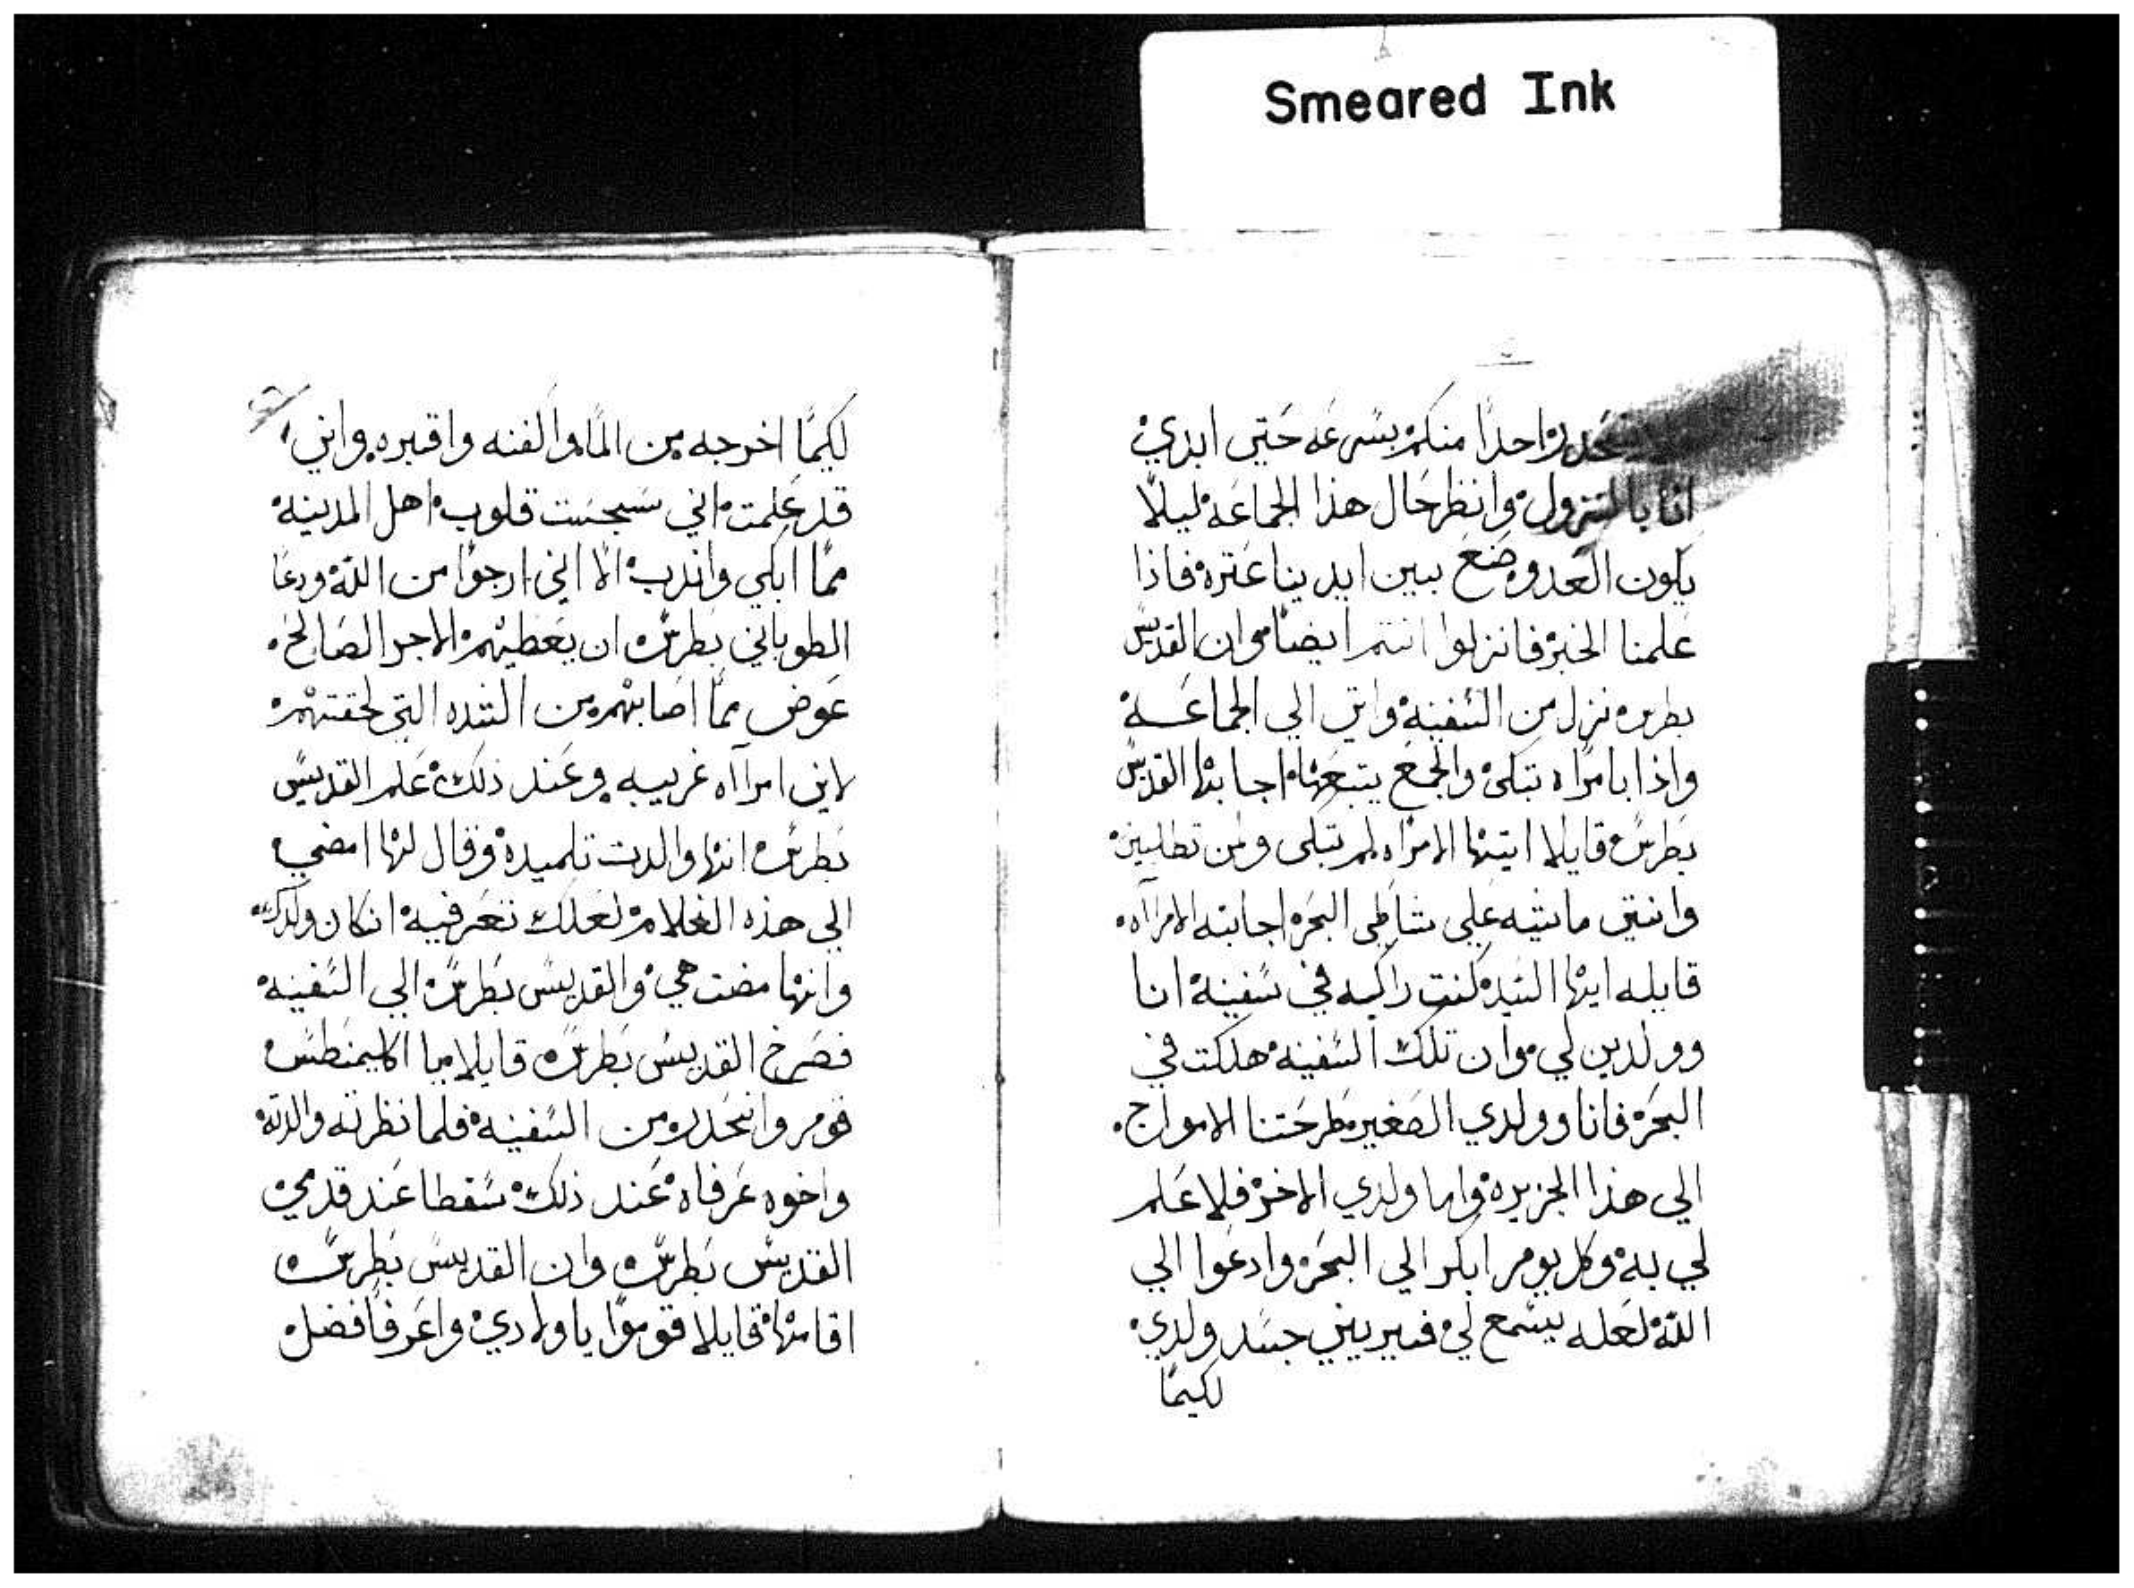 Smeared Ink
احدا منكم بسرعه حتي ابدي
انا بالنزول وانظر حال هذا الجماعه ليلا
يكون العدو وضع بين ايدينا عتره فاذا
علمنا الخبر فانزلوا انتم ايضا وان القديس
بطرس نزل من السفينه واتي الي الجماعه
واذا بامراه تبكي والجمع يتبعها اجابها القديس
بطرس قايلا ايتها الامراه لم تبكي ولمن تطلبين
وانتي ماشيه علي شاطي البحر اجابته الامرآاه
قايله ايها السيد كنت راكبه في سفينه انا
وولدين لي وان تلك السفينه هلكت في
البحر فانا وولدي الصغير طرحتنا الامواج
الي هذا الجزيره واما ولدي الاخر فلا علم
لي به وكل يوم ابكر الي البحر وادعوا الي
الله لعله يسمع لي فيريني جسد ولدي
لكيما
لكيما اخرجه من الما والفنه واقبره واني
قد علمت اني سجست قلوب اهل المدينه
مما ابكي واندب الا اني ارجوا من الله ودعا
الطوباني بطرس ان يعطيهم الاجر الصالح
عوض مما اصابتهم من الشده التي لحقتهم
لاني امرآاه غريبه وعند ذلك علم القديس
بطرس انها والدت تلميده وقال لها امضي
الي هذه الغلام لعلك تعرفيه انكان ولدك
وانها مضت هي والقديس بطرس الي السفينه
فصرخ القديس بطرس قايلا يا اكليمنطس
قوم وانحدر من السفينه فلما نظرته والدته
واخوه عرفاه عند ذلك سقطا عند قدمي
القديس بطرس وان القديس بطرس
اقامها قايلا قوموا يا ولادي واعرفا فضل